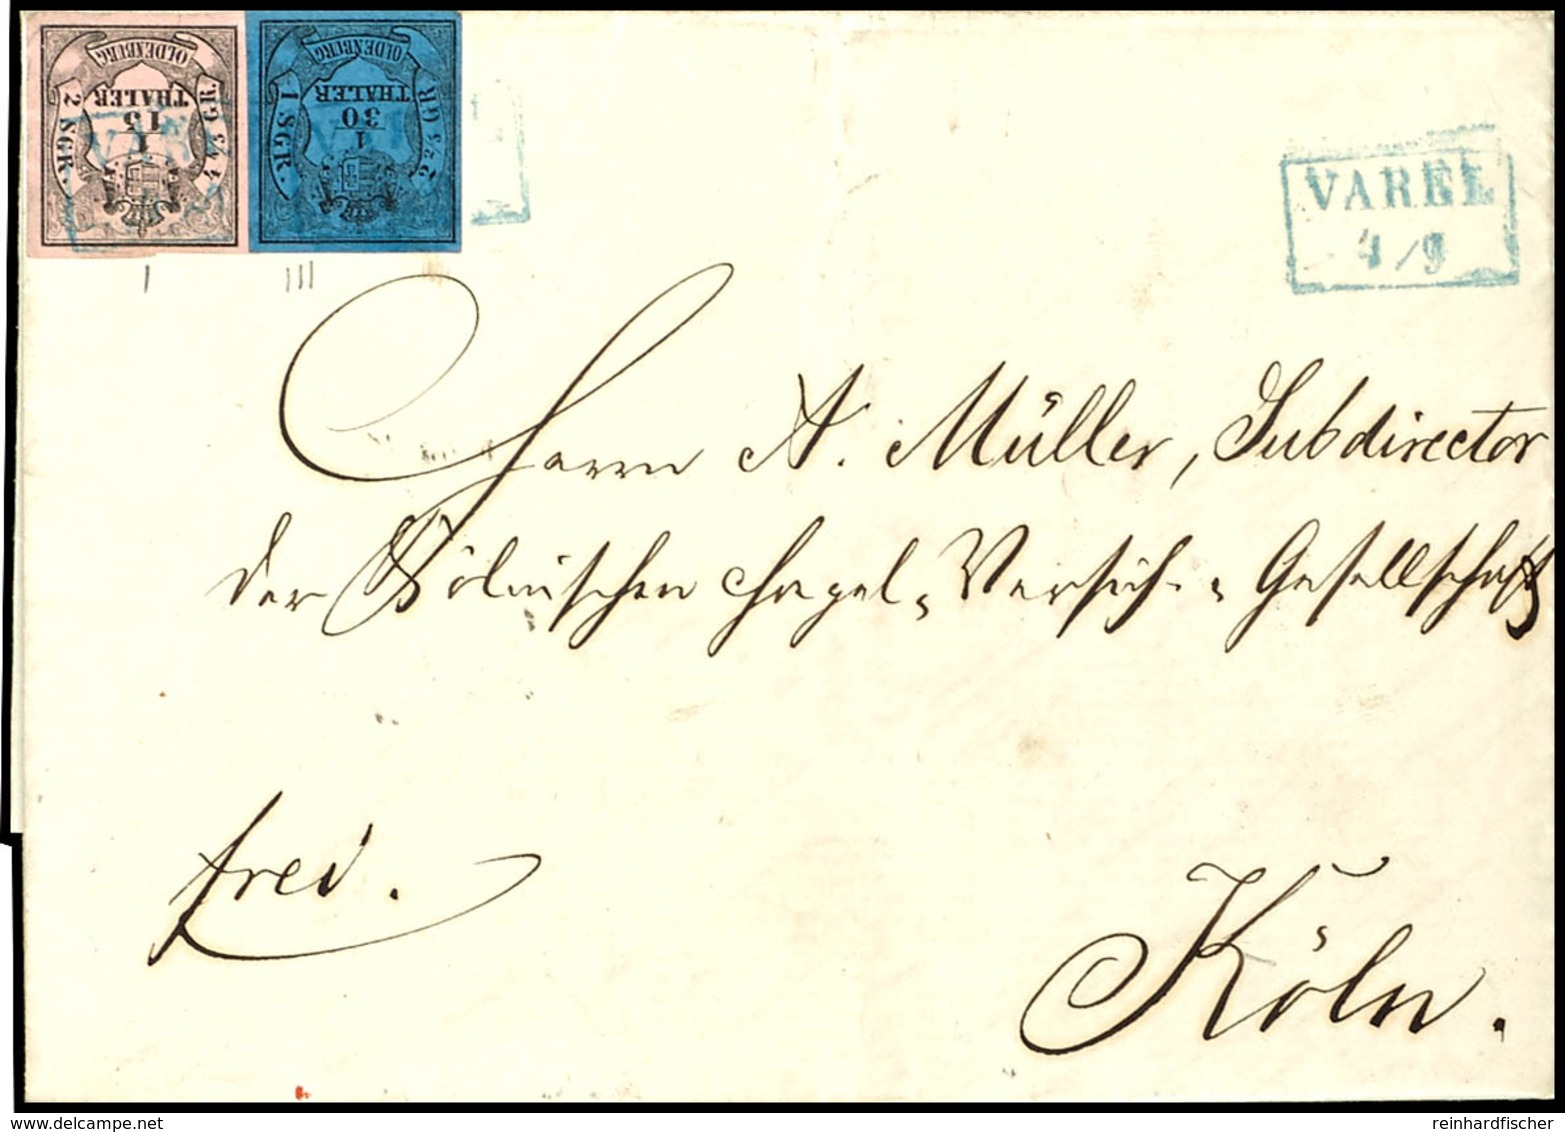 OLDENBURG
1/15
THALER
2 SGR.
4 4/5 GR.
OLDENBURG
1/30
THALER
1 SGR.
2 2/5 GR.
VAREL
VAREL
4/9
I
III
Herrn A. Müller, Subdirector
der Kölnischen Hagel-Versich.-Gesellschaft
frei.
Köln.
reinhardfischer